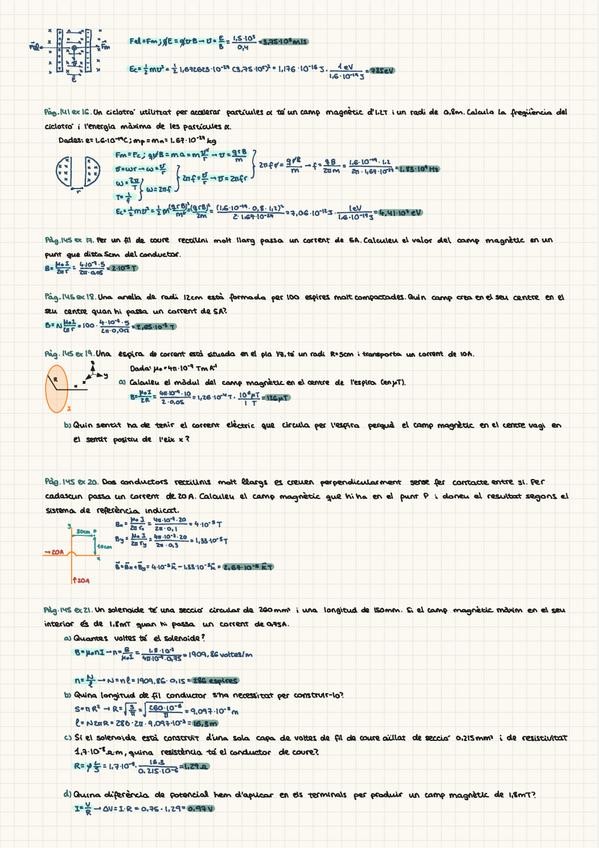 Fel=Fm; qE = qvB → v = E/B = 1,5·10⁵/0,4 = 3,75·10⁵ m/s
Ec = ½ mv² = ½ 1,67·10⁻²⁷ (3,75·10⁵)² = 1,176·10⁻¹⁶ J · 1eV/1,6·10⁻¹⁹ J = 735eV
Pàg.141 ex 16. Un ciclotró utilitzat per accelerar partícules α té un camp magnètic d'1,2T i un radi de 0,8m. Calcula la freqüència del
ciclotró i l'energia màxima de les partícules α.
Dades: e=1,6·10⁻¹⁹C; mp=mn=1,67·10⁻²⁷kg
Fm=Fc; qvB = ma = m v²/r → v = qrB/m
v=ωr → ω = v/r
ω = 2π/T
T = 1/f
ω=2πf
2πf = v/r → v=2πrf
2πfr = qrB/m → f = qB/2πm = 1,6·10⁻¹⁹·1,2/2π·1,67·10⁻²⁷ = 1,83·10⁷ Hz
Ec = ½ mv² = ½ m (qrB)²/m² = (qrB)²/2m = (1,6·10⁻¹⁹·0,8·1,2)²/2·1,67·10⁻²⁷ = 7,06·10⁻¹² J · 1eV/1,6·10⁻¹⁹ J = 4,41·10⁷ eV
Pàg.145 ex 17. Per un fil de coure rectilini molt llarg passa un corrent de 5A. Calculeu el valor del camp magnètic en un
punt que dista 5cm del conductor.
B = μ₀I/2πr = 4·10⁻⁷·5/2π·0,05 = 2·10⁻⁵ T
Pàg.145 ex 18. Una anella de radi 12cm està formada per 100 espires molt compactades. Quin camp crea en el seu centre en el
seu centre quan hi passa un corrent de 5A?
Pàg.145 ex 19. Una espira de corrent està situada en el pla YZ, té un radi R=5cm i transporta un corrent de 10A.
Dada: μ₀=4π·10⁻⁷ TmA⁻¹
R
y
I
a) Calculeu el mòdul del camp magnètic en el centre de l'espira (en μT).
B = μ₀I/2R = 4π·10⁻⁷·10/2·0,05 = 1,26·10⁻⁴ T · 10⁶μT/1 T = 126μT
b) Quin sentit ha de tenir el corrent elèctric que circula per l'espira perquè el camp magnètic en el centre vagi en
el sentit positiu de l'eix x?
Pàg.145 ex 20. Dos conductors rectilinis molt llargs es creuen perpendicularment sense fer contacte entre si. Per
cadascun passa un corrent de 20A. Calculeu el camp magnètic que hi ha en el punt P i doneu el resultat segons el
sistema de referència indicat.
y
30cm P
10cm
x
→20A
↑20A
Bx = μ₀I/2πrx = 4π·10⁻⁷·20/2π·0,1 = 4·10⁻⁵ T
By = μ₀I/2πry = 4π·10⁻⁷·20/2π·0,3 = 1,33·10⁻⁵ T
B = Bx + By = 4·10⁻⁵ k − 1,33·10⁻⁵ k = 2,67·10⁻⁵ k T
Pàg.145 ex 21. Un solenoide té una secció circular de 260mm² i una longitud de 150mm. Si el camp magnètic màxim en el seu
interior és de 1,8mT quan hi passa un corrent de 0,75A.
a) Quantes voltes té el solenoide?
B = μ₀nI → n = B/μ₀I = 1,8·10⁻³/4π·10⁻⁷·0,75 = 1909,86 voltes/m
n = N/l → N = nl = 1909,86·0,15 = 286 espires
b) Quina longitud de fil conductor s'ha necessitat per construir-lo?
S = πR² → R = √(S/π) = √(260·10⁻⁶/π) = 9,097·10⁻³ m
l = N2πR = 286·2π·9,097·10⁻³ = 16,3m
c) Si el solenoide està construït d'una sola capa de voltes de fil de coure aïllat de secció 0,215mm² i de resistivitat
1,7·10⁻⁸Ω·m, quina resistència té el conductor de coure?
R = ρ l/S = 1,7·10⁻⁸ · 16,3/0,215·10⁻⁶ = 1,29Ω
d) Quina diferència de potencial hem d'aplicar en els terminals per produir un camp magnètic de 1,8mT?
I = V/R → ΔV = I·R = 0,75·1,29 = 0,97V